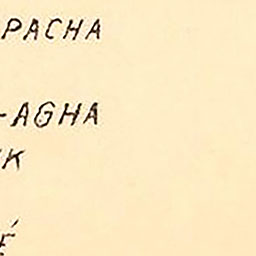 PACHA
-AGHA
K
É